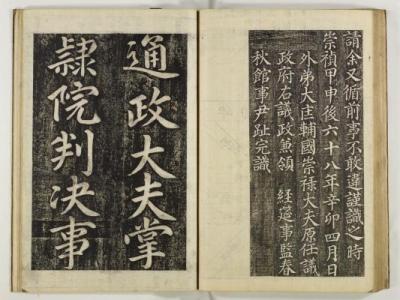 請余又循前事不敢違謹識之時
崇禎甲申後六十八年辛卯四月日
外弟大匡輔國崇祿大夫原任議
政府右議政兼領 經筵事監春
秋館事尹趾完識
通政大夫掌
隷院判決事